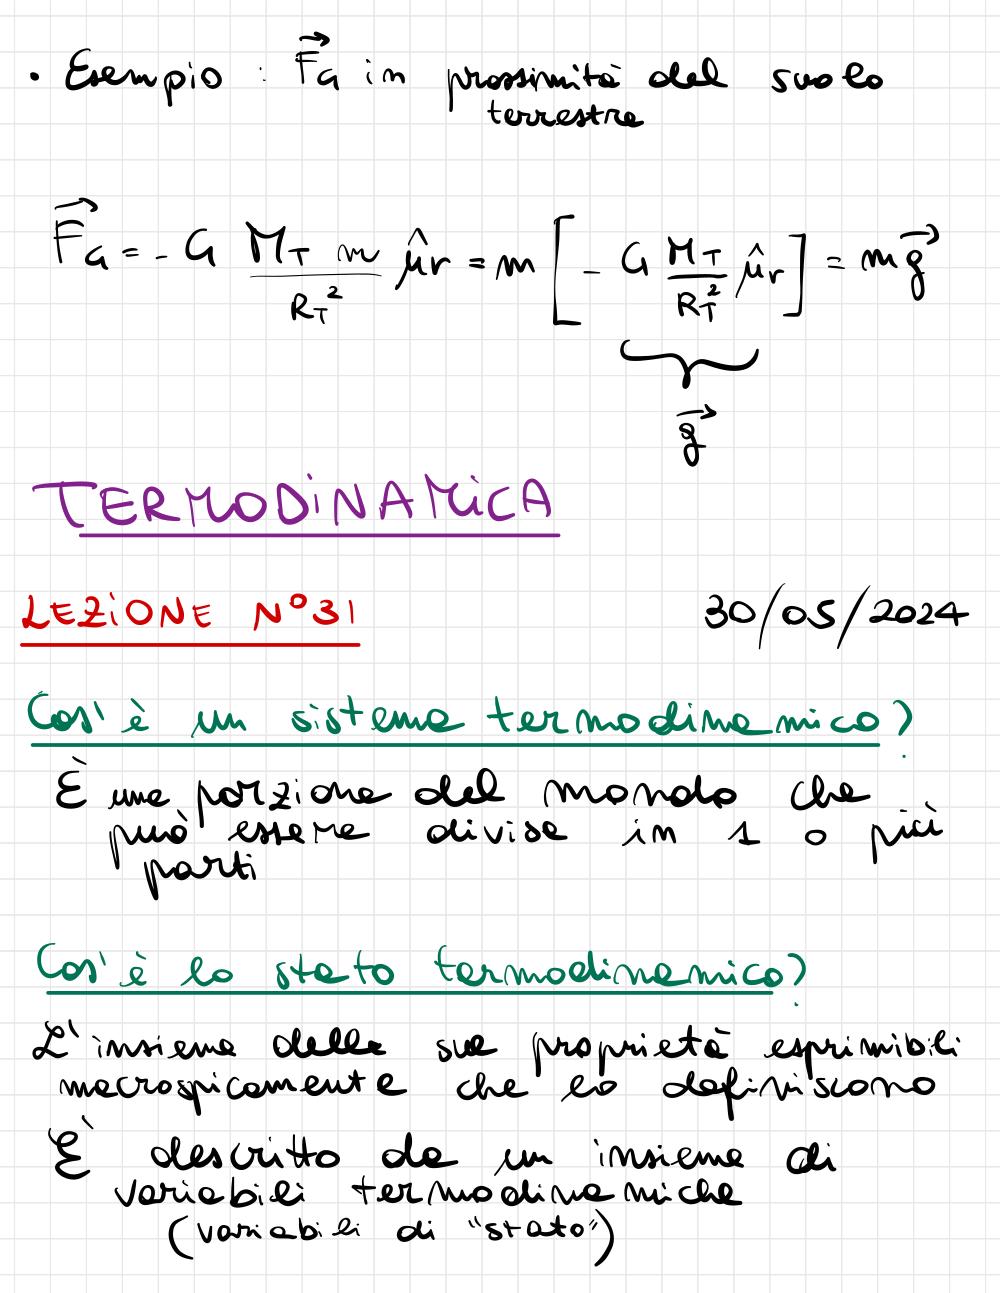 • Esempio : F⃗G in prossimità del suolo
terrestre
F⃗G = - G (M_T m / R_T²) û_r = m [ - G (M_T / R_T²) û_r ] = m g⃗
g⃗
TERMODiNAMiCA
LEZiONE N°31 30/05/2024
Cos'è un sistema termodinamico?
È una porzione del mondo che
può essere divisa in 1 o più
parti
Cos'è lo stato termodinamico?
L'insieme delle sue proprietà esprimibili
macrospicamente che lo definiscono
È descritto da un insieme di
variabili termodinamiche
(variabili di "stato")